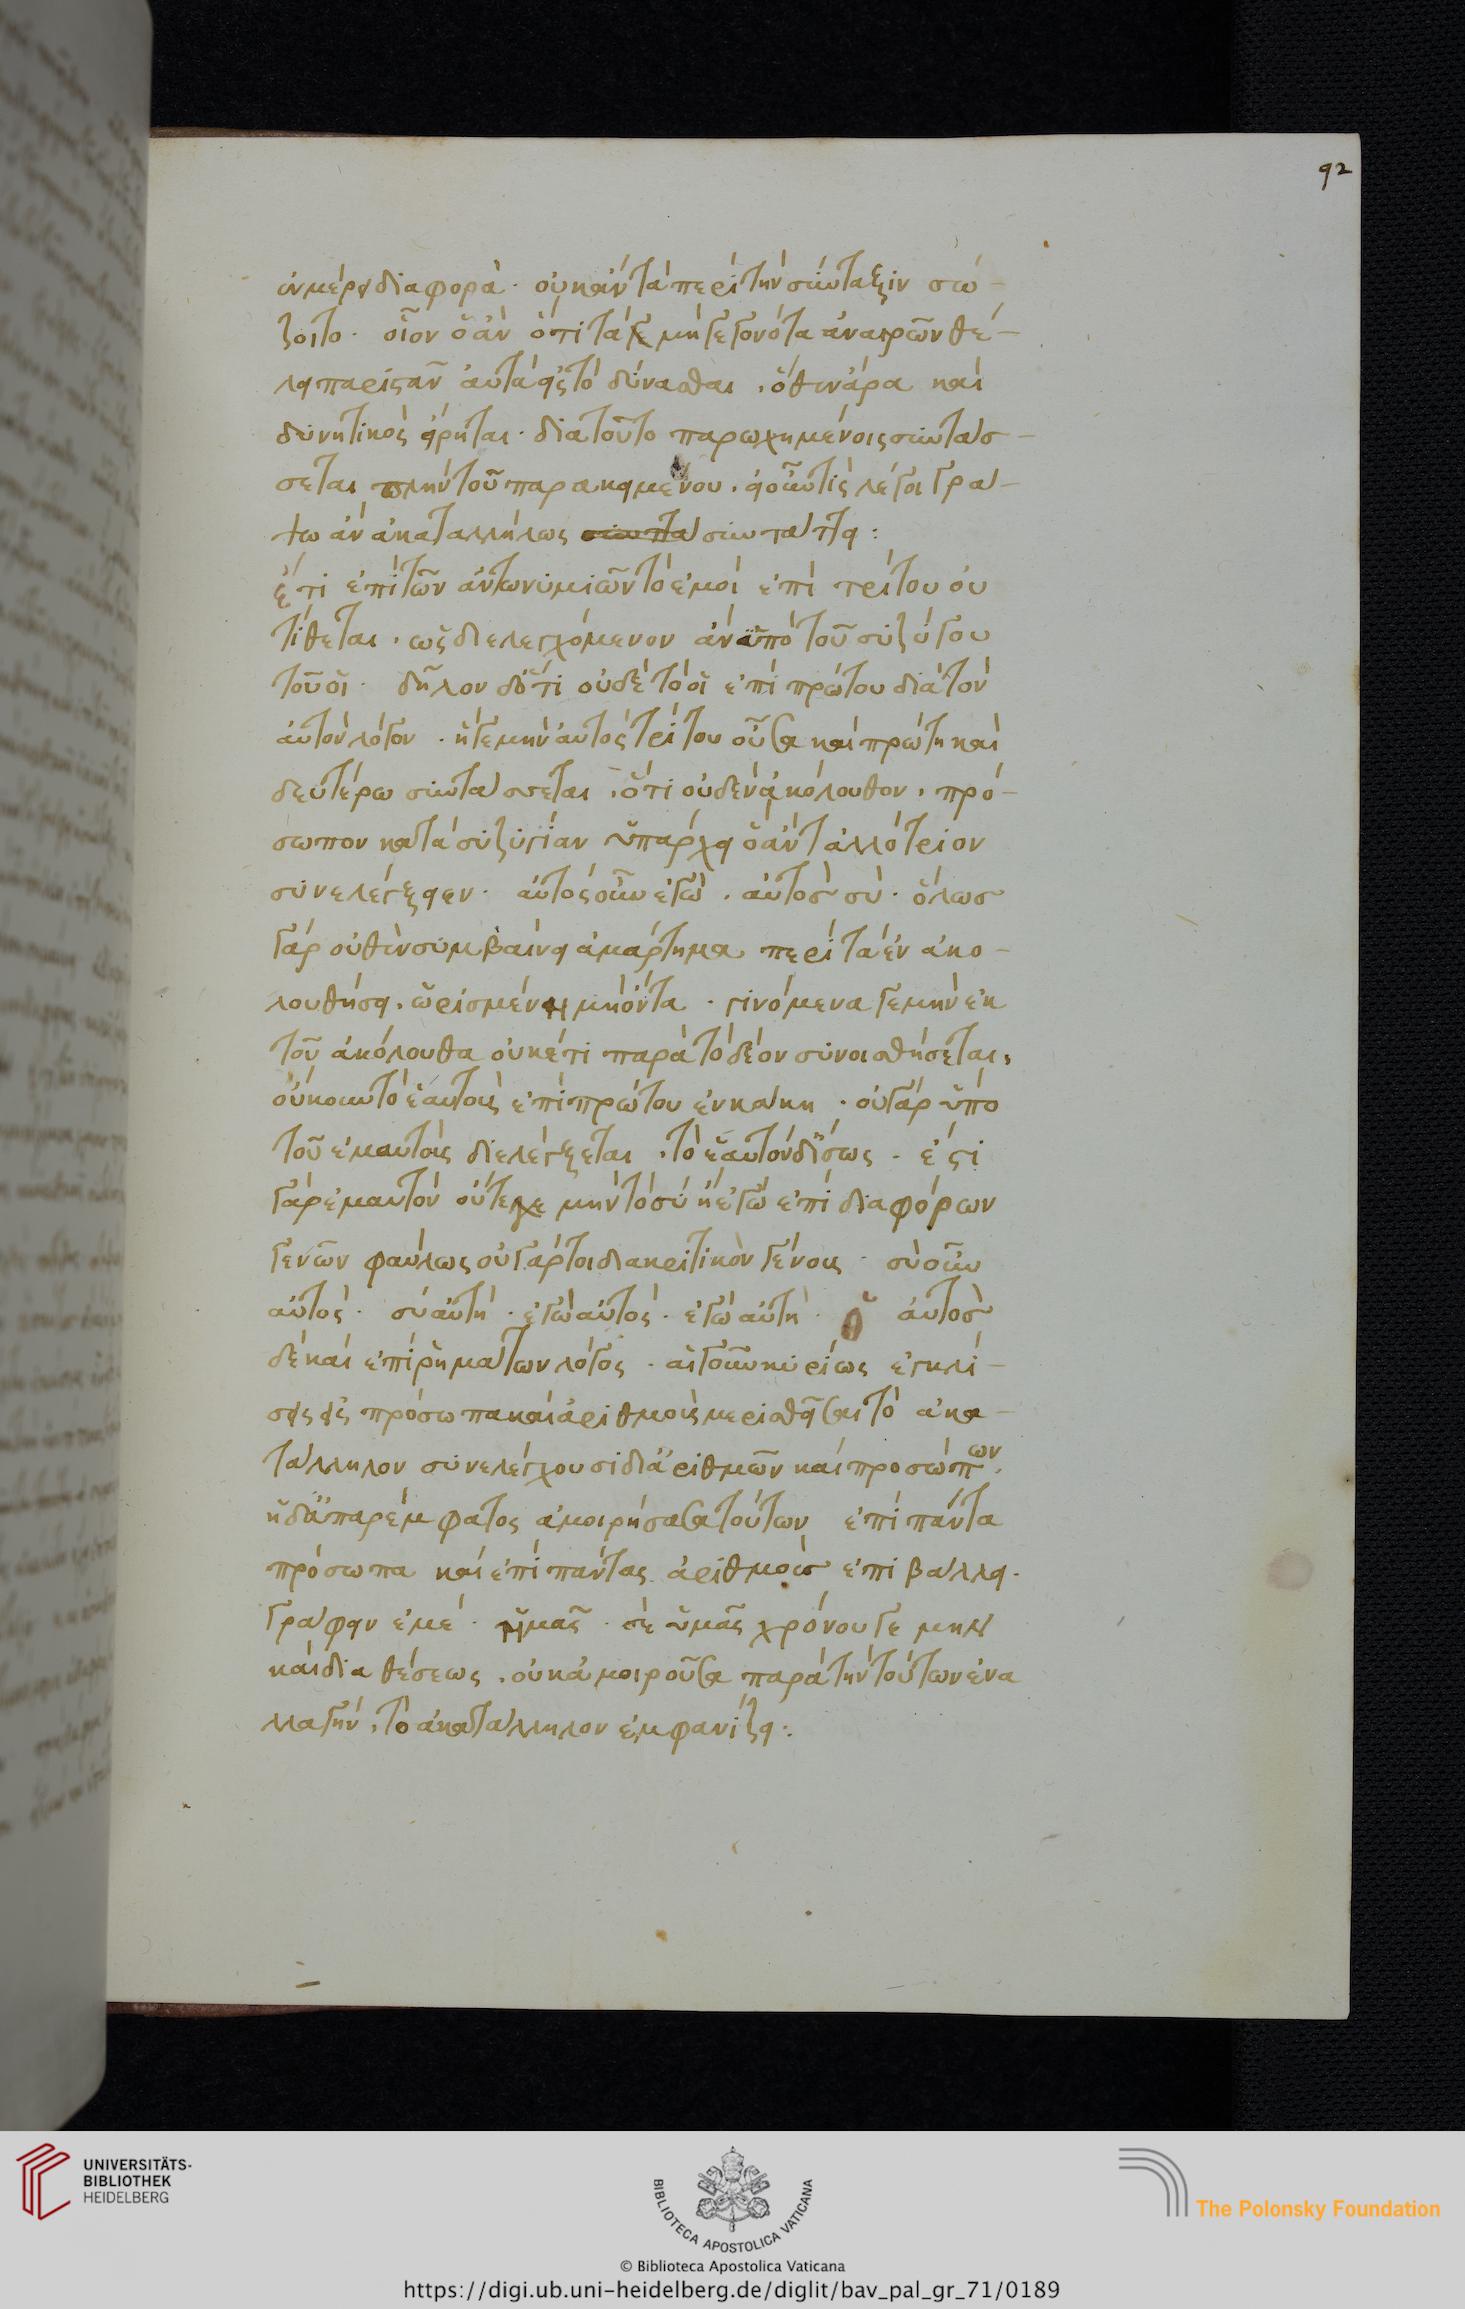 92
ἐν μέρει διαφορὰ. οὐκ ἂν τὰ περὶ τὴν σύνταξιν σώ-
ζοιτο. οἷον ὁ ἂν ὅτι τά γε μὴ γεγονότα ἀναιρῶν θέ-
λει παριστᾶν αὐτὰ εἰς τὸ δύνασθαι, ὅθεν ἄρα καὶ
δυνητικὸς εἴρηται. διὰ τοῦτο παρωχημένοις συντάσ-
σεται πλὴν τοῦ παρακειμένου. εἰ οὖν τὶς λέγοι γρά-
ψω ἂν ἀκαταλλήλως συντάττει:
ἔτι ἐπὶ τῶν ἀντωνυμιῶν τὸ ἐμοὶ ἐπὶ τρίτου οὐ
τίθεται. ὡς διελεγχόμενον ἂν ὑπὸ τοῦ συζύγου
τοῦ οἷ. δῆλον δ' ὅτι οὐδὲ τὸ οἷ ἐπὶ πρώτου διὰ τὸν
αὐτὸν λόγον. ἥ γε μὴν αὐτὸς τρίτου οὖσα καὶ πρώτη καὶ
δευτέρω συντάσσεται, ὅτι οὐδὲν ἀκόλουθον. πρό-
σωπον κατὰ συζυγίαν ὑπάρχει ὃ ἂν τ' ἀλλότριον
συνελέγξειεν. αὐτὸς οὖν ἐγὼ. αὐτὸς σὺ. ὅλως
γὰρ οὐθὲν συμβαίνει ἁμάρτημα περὶ τὰ ἐν ἀκο-
λουθήσει. ὡρισμένη μὴ ὄντα. γινόμενα γε μὴν ἐκ
τοῦ ἀκόλουθα οὐκέτι παρὰ τὸ δέον συνοισθήσεται,
οὔκουν τὸ ἑαυτοὺς ἐπὶ πρώτου ἐν κακῆ. οὐ γὰρ ὑπὸ
τοῦ ἐμαυτοὺς διελέγξεται. τὸ ἑαυτὸν δ' ἴσως. ἔστι
γὰρ ἐμαυτὸν οὔτε γε μὴν τὸ σὺ ἢ ἐγὼ ἐπὶ διαφόρων
γενῶν φαύλως οὐ γάρ τοι διακριτικὸν γένους. σὺ οὖν
αὐτὸς. σὺ αὐτὴ. ἐγὼ αὐτὸς. ἐγὼ αὐτὴ. ὁ αὐτὸς
δὲ καὶ ἐπὶ ῥημάτων λόγος. αἵ γ' οὖν κυρίως ἐγκλί-
σεις εἰς πρόσωπα καὶ ἀριθμοὺς μερισθεῖσαι τὸ ἀκα-
τάλληλον συνελέγχουσι δι' ἀριθμῶν καὶ προσώπων.
ἡ δ' ἀπαρέμφατος ἀμοιρήσασα τούτων ἐπὶ πάντα
πρόσωπα καὶ ἐπὶ πάντας ἀριθμοὺς ἐπιβάλλει.
γράφειν ἐμὲ. ἡμᾶς. σὲ ὑμᾶς χρόνου γε μὴν
καὶ διαθέσεως. οὐκ ἀμοιροῦσα παρὰ τὴν τούτων ἐνα
λλαγὴν, τὸ ἀκατάλληλον ἐμφανίζει:
UNIVERSITÄTS-
BIBLIOTHEK
HEIDELBERG
BIBLIOTECA APOSTOLICA VATICANA
The Polonsky Foundation
© Biblioteca Apostolica Vaticana
https://digi.ub.uni-heidelberg.de/diglit/bav_pal_gr_71/0189